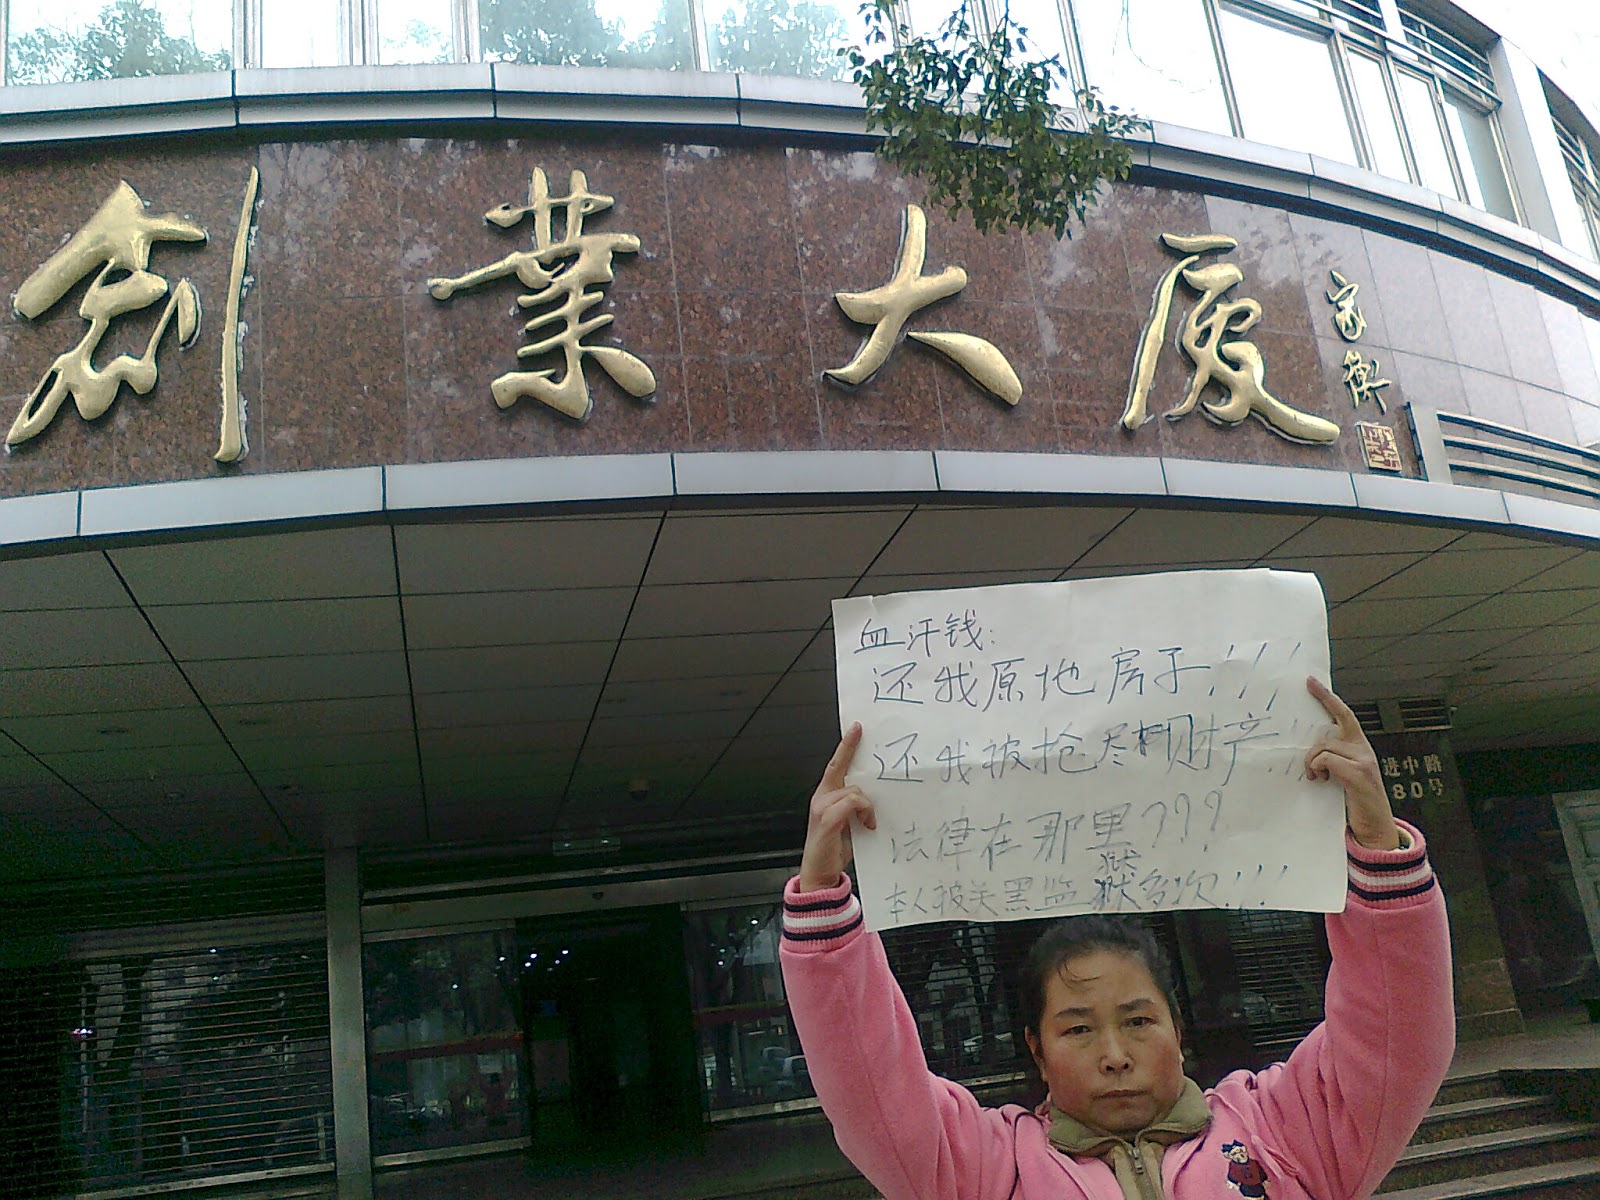 創業大厦
家衡
血汗钱:
还我原地房子!!!
还我被抢尽财产!!!
法律在那里???
狱
本人被关黑监狱多次!!!
进中路
80号